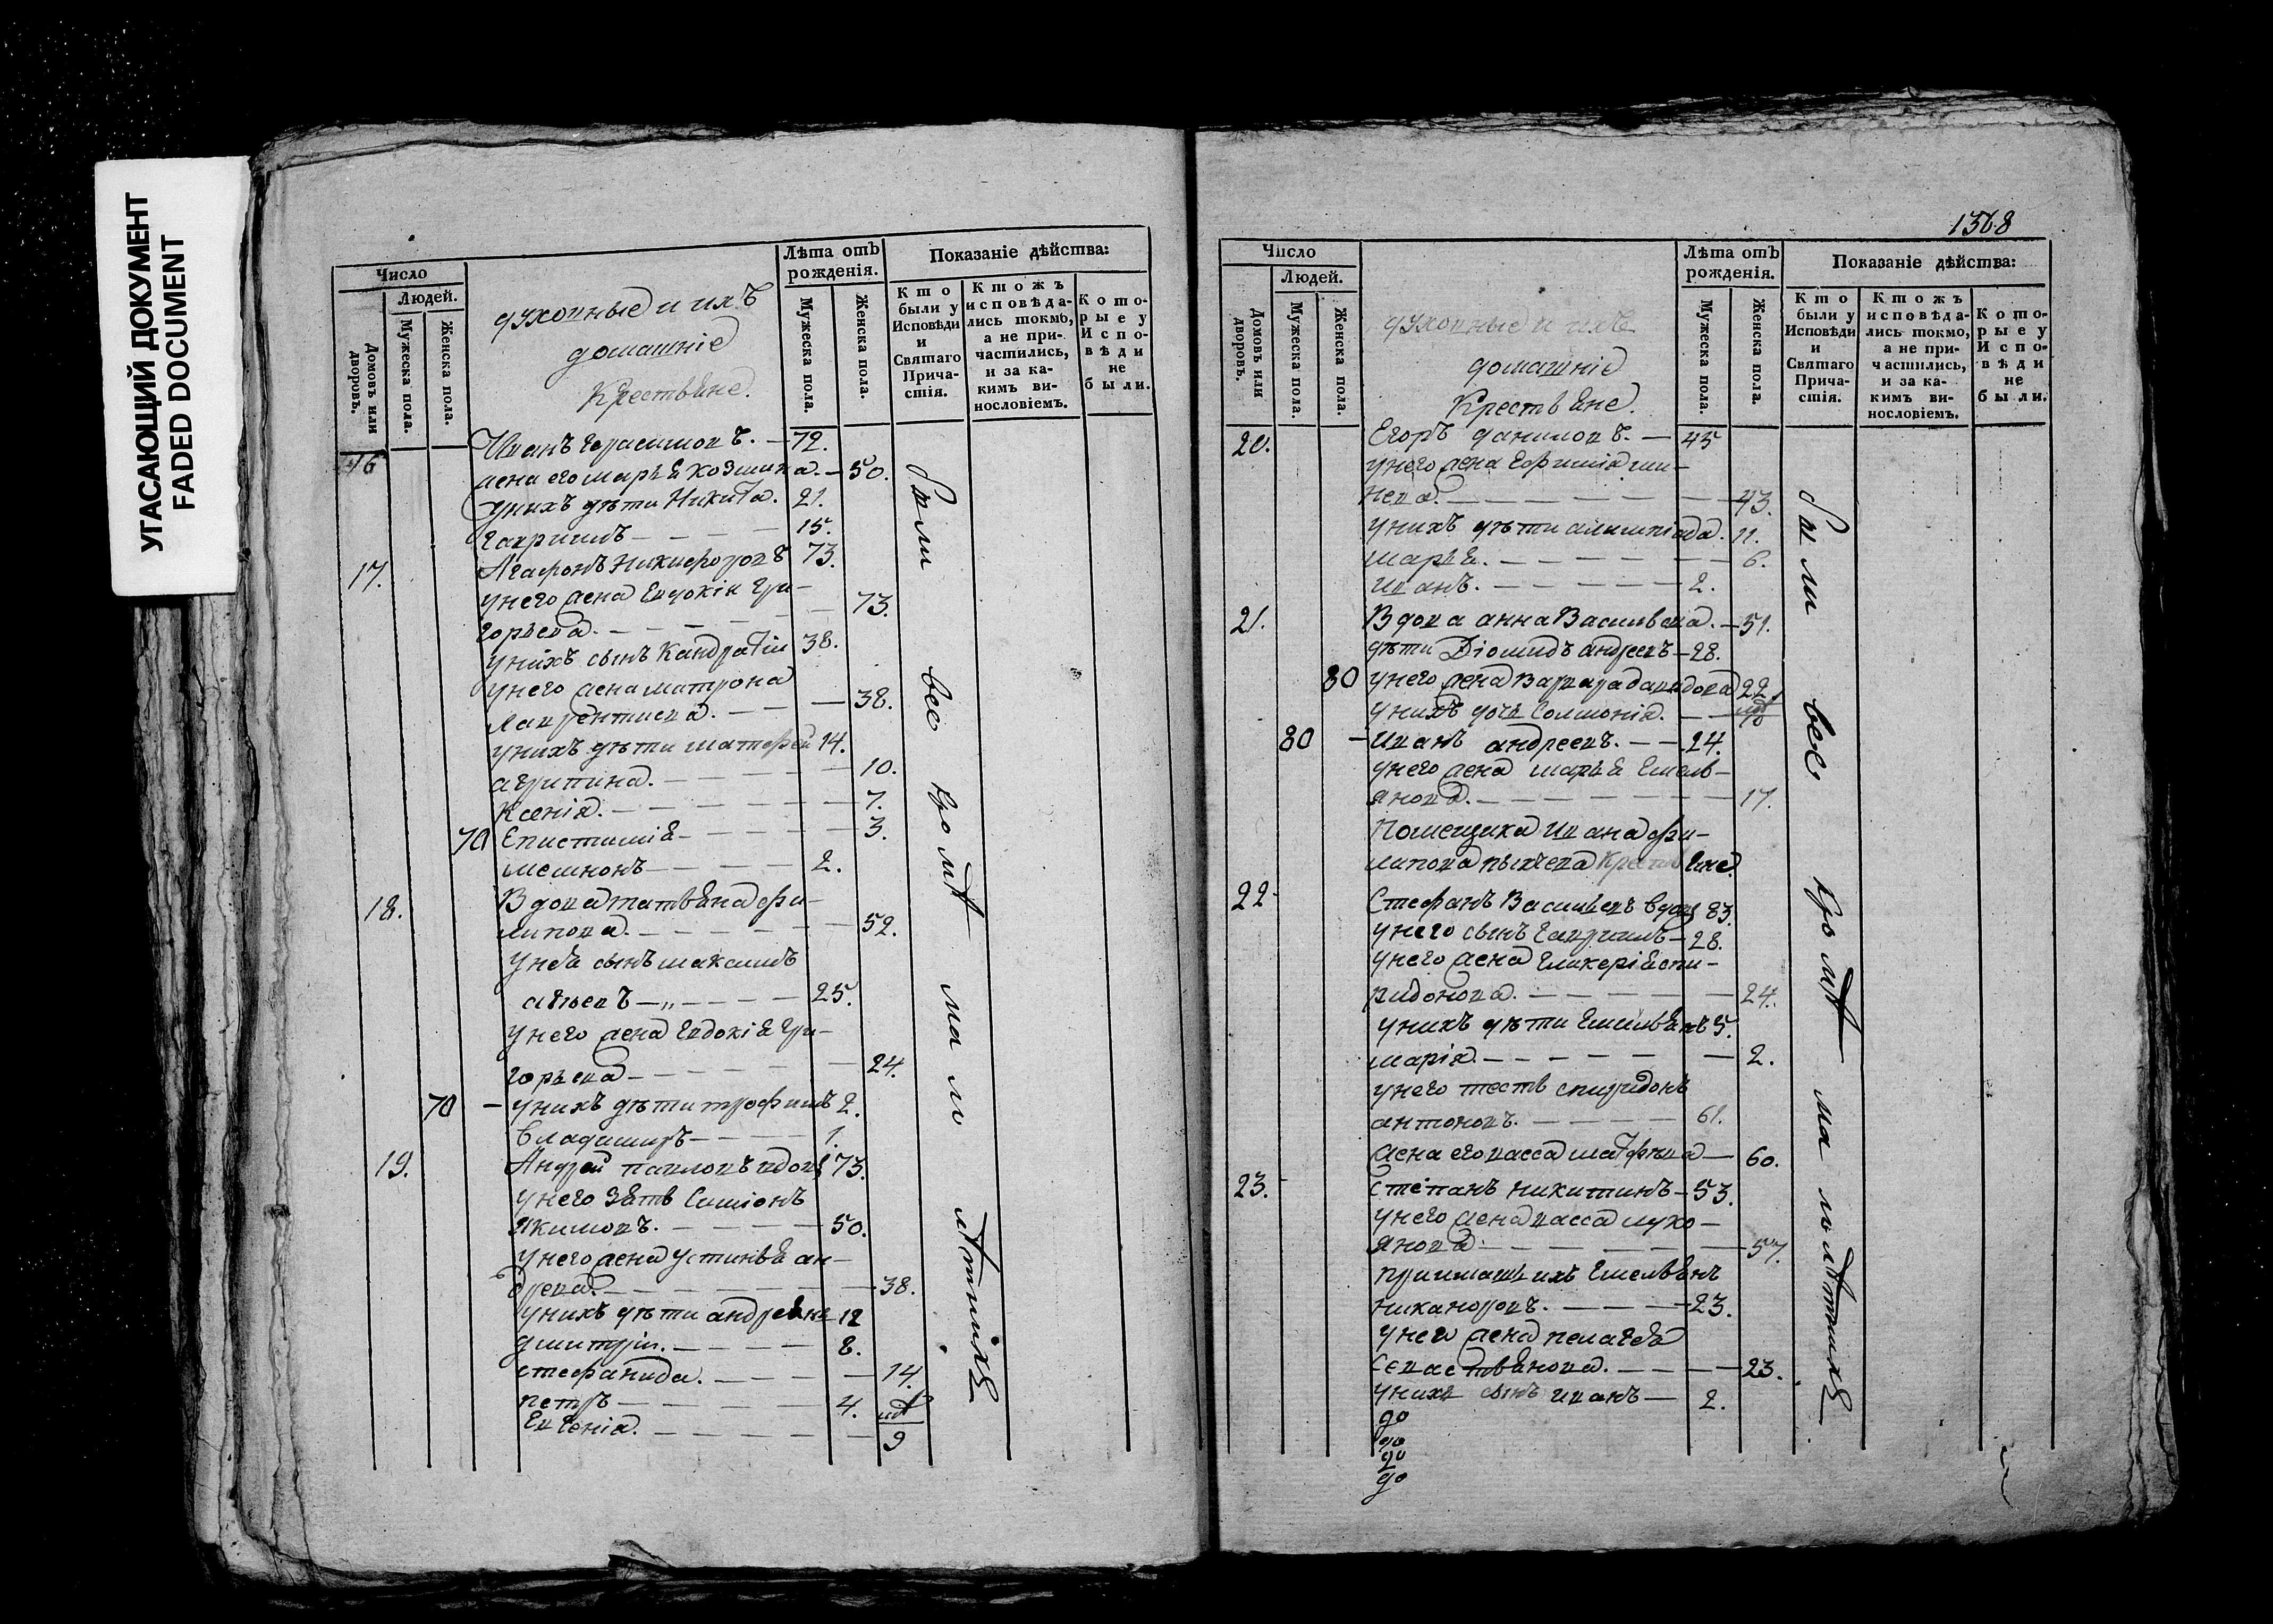 УГАСАЮЩИЙ ДОКУМЕНТ
FADED DOCUMENT
Число
Людей.
Домовъ или дворовъ.
Мужеска пола.
Женска пола.
духовные и ихъ
домашніе
Крестьяне.
Лѣта отъ рожденія.
Мужеска пола.
Женска пола.
Показаніе дѣйства:
Кто были у Исповѣди и Святаго Причастія.
Ктожъ исповѣдались токмо, а не причастились, и за какимъ винословіемъ.
Которыеу Исповѣди не были.
16 Иванъ Герасимовъ. — 72.
жена его марья козмина. — 50.
унихъ дѣти Никита. 21.
гавриилъ — — — 15.
17. Агафонъ Никифоровъ 73.
унего жена Евдокія Гри-
горьева. — — — 73.
унихъ сынъ Кандратій 38.
унего жена матрона
лаврентиева. — — — 38.
унихъ дѣти матофей 14.
агрипина. — — — 10.
Ксенія. — — — 7.
70 Епистимія — — — 3.
мемнонъ — — — 2.
18. Вдова татьяна фи-
липова. — — — 52.
унея сынъ максимъ
— „ — — — 25.
унего жена Евдокія Гри-
горьева — — — 24.
70 — унихъ дѣти трофимъ 2.
владимиръ — — — 1.
19. Андрей павловъ вдовъ 73.
унего зять Симіонъ
якимовъ. — — — 50.
унего жена устинья ан-
дреева. — — — 38.
унихъ дѣти андреянъ 12
дмитрій. — — — 8.
стефанида. — — — 14.
петръ — — — 4.
Евгенія. — — — 9
были все кромѣ малолѣтнихъ
1368
Число
Людей.
Домовъ или дворовъ.
Мужеска пола.
Женска пола.
духовные и ихъ
домашніе
Крестьяне.
Лѣта отъ рожденія.
Мужеска пола.
Женска пола.
Показаніе дѣйства:
Кто были у Исповѣди и Святаго Причастія.
Ктожъ исповѣдались токмо, а не причастились, и за какимъ винословіемъ.
Которыеу Исповѣди не были.
20. Егоръ даниловъ. — 45
унего жена Ефимія ми-
неева. — — — 43.
унихъ дѣти алимпіада. 11.
марья. — — — 6.
иванъ. — — — 2.
21. Вдова анна Васильева. — 51.
дѣти Діомидъ андреевъ — 28.
80 унего жена варвара давидова 22
унихъ дочь Соломонія. —
80 — иванъ андреевъ. — — 24.
унего жена марья Емель-
янова. — — — 17.
Помещика ивана фи-
липова Крестьяне
22 Стефанъ Васильевъ вдовъ 83.
унего сынъ гавриилъ — 28.
унего жена гликерія спи-
ридонова. — — — 24.
унихъ дѣти Емельянъ 5.
марія. — — — 2.
унего тесть спиридонъ
антоновъ. — — — 61.
жена его васса матфѣева — 60.
23. Степанъ никитинъ — 53.
унего жена васса луко-
янова. — — — 57.
приимашъ ихъ Емельянъ
никаноровъ. — — — 23.
унего жена пелагея
севастьянова. — — — 23.
унихъ сынъ иванъ — 2.
до
до
до
до
были все кромѣ малолѣтнихъ